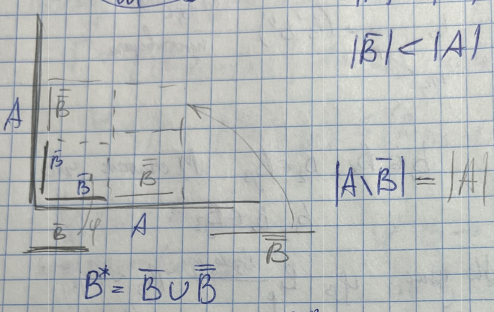 |B̅| < |A|
A
B̿
B̅
B̅
B̿
|A\B̅| = |A|
B̅
A
B̿
B* = B̅ ∪ B̿